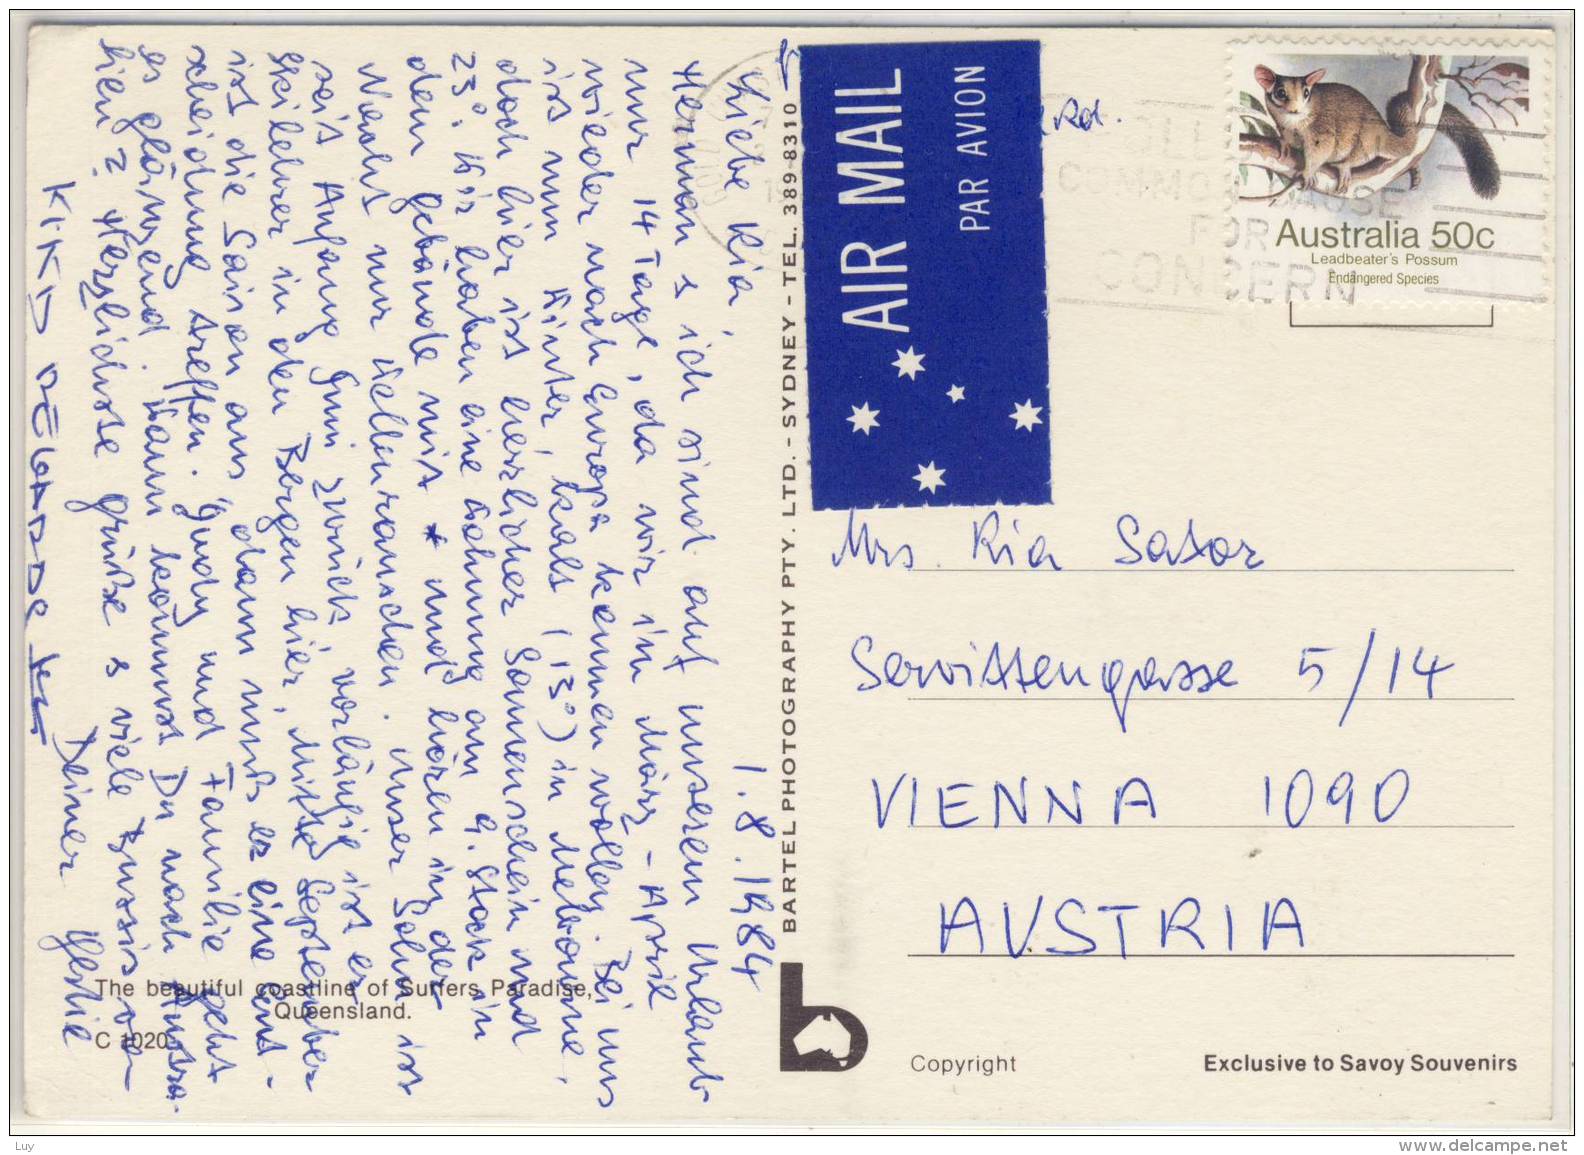 1.8.1984
Liebe Ria!
Herman & ich sind auf unserem Urlaub
nur 14 Tage, da wir im März - April
wieder nach Europa kommen wollen. Bei uns
ist nun Winter, kalt (13°) in Melbourne,
doch hier ist herrlicher Sonnenschein und
23°. Wir haben eine Wohnung am 9. Stock in
dem Gebäude mit * und hören in der
Nacht nur Wellenrauschen. Unser Sohn ist
seit Anfang Juni zurück, vorläufig ist er
Skilehrer in den Bergen hier, Mitte September
ist die Saison aus dann muß er eine Ent-
scheidung treffen. Judy und Familie geht
es glänzend. Wann kommst Du nach Austra-
lien? Herzlichste Grüße & viele Bussis von
Deiner
AIR MAIL
PAR AVION
Rd.
COMMON CAUSE
FOR
CONCERN
Australia 50c
Leadbeater's Possum
Endangered Species
Mrs. Ria Sator
Servittengasse 5/14
VIENNA 1090
AUSTRIA
BARTEL PHOTOGRAPHY PTY. LTD. - SYDNEY - TEL. 389-8310
The beautiful coastline of Surfers Paradise,
Queensland.
C 1020
Copyright
Exclusive to Savoy Souvenirs
Luy
www.delcampe.net